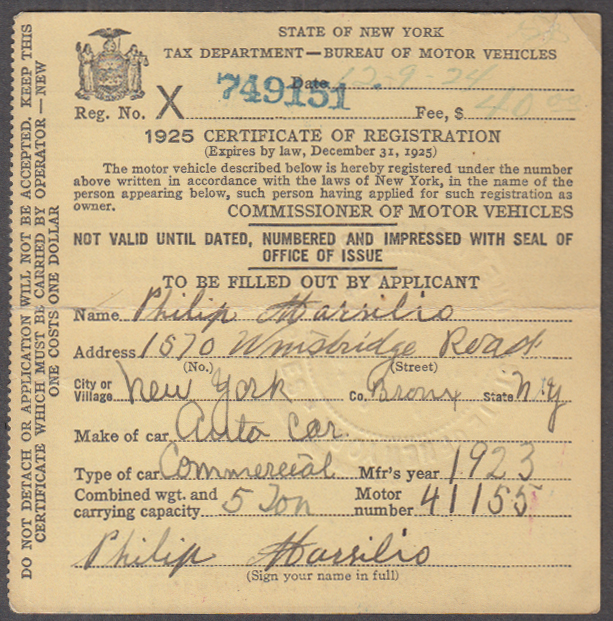 STATE OF NEW YORK
TAX DEPARTMENT—BUREAU OF MOTOR VEHICLES
Date 12-9-24
Reg. No. X 749151 Fee, $ 40.00
1925 CERTIFICATE OF REGISTRATION
(Expires by law, December 31, 1925)
The motor vehicle described below is hereby registered under the number
above written in accordance with the laws of New York, in the name of the
person appearing below, such person having applied for such registration as
owner. COMMISSIONER OF MOTOR VEHICLES
NOT VALID UNTIL DATED, NUMBERED AND IMPRESSED WITH SEAL OF
OFFICE OF ISSUE
TO BE FILLED OUT BY APPLICANT
Name Philip Marsilio
Address 1570 Road
(No.) (Street)
City or Village New York Co. Bronx State N.Y
Make of car Auto Car.
Type of car Commercial Mfr's year 1923
Combined wgt. and carrying capacity 5 Ton Motor number 41155
Philip Marsilio
(Sign your name in full)
DO NOT DETACH OR APPLICATION WILL NOT BE ACCEPTED. KEEP THIS
CERTIFICATE WHICH MUST BE CARRIED BY OPERATOR—NEW
ONE COSTS ONE DOLLAR